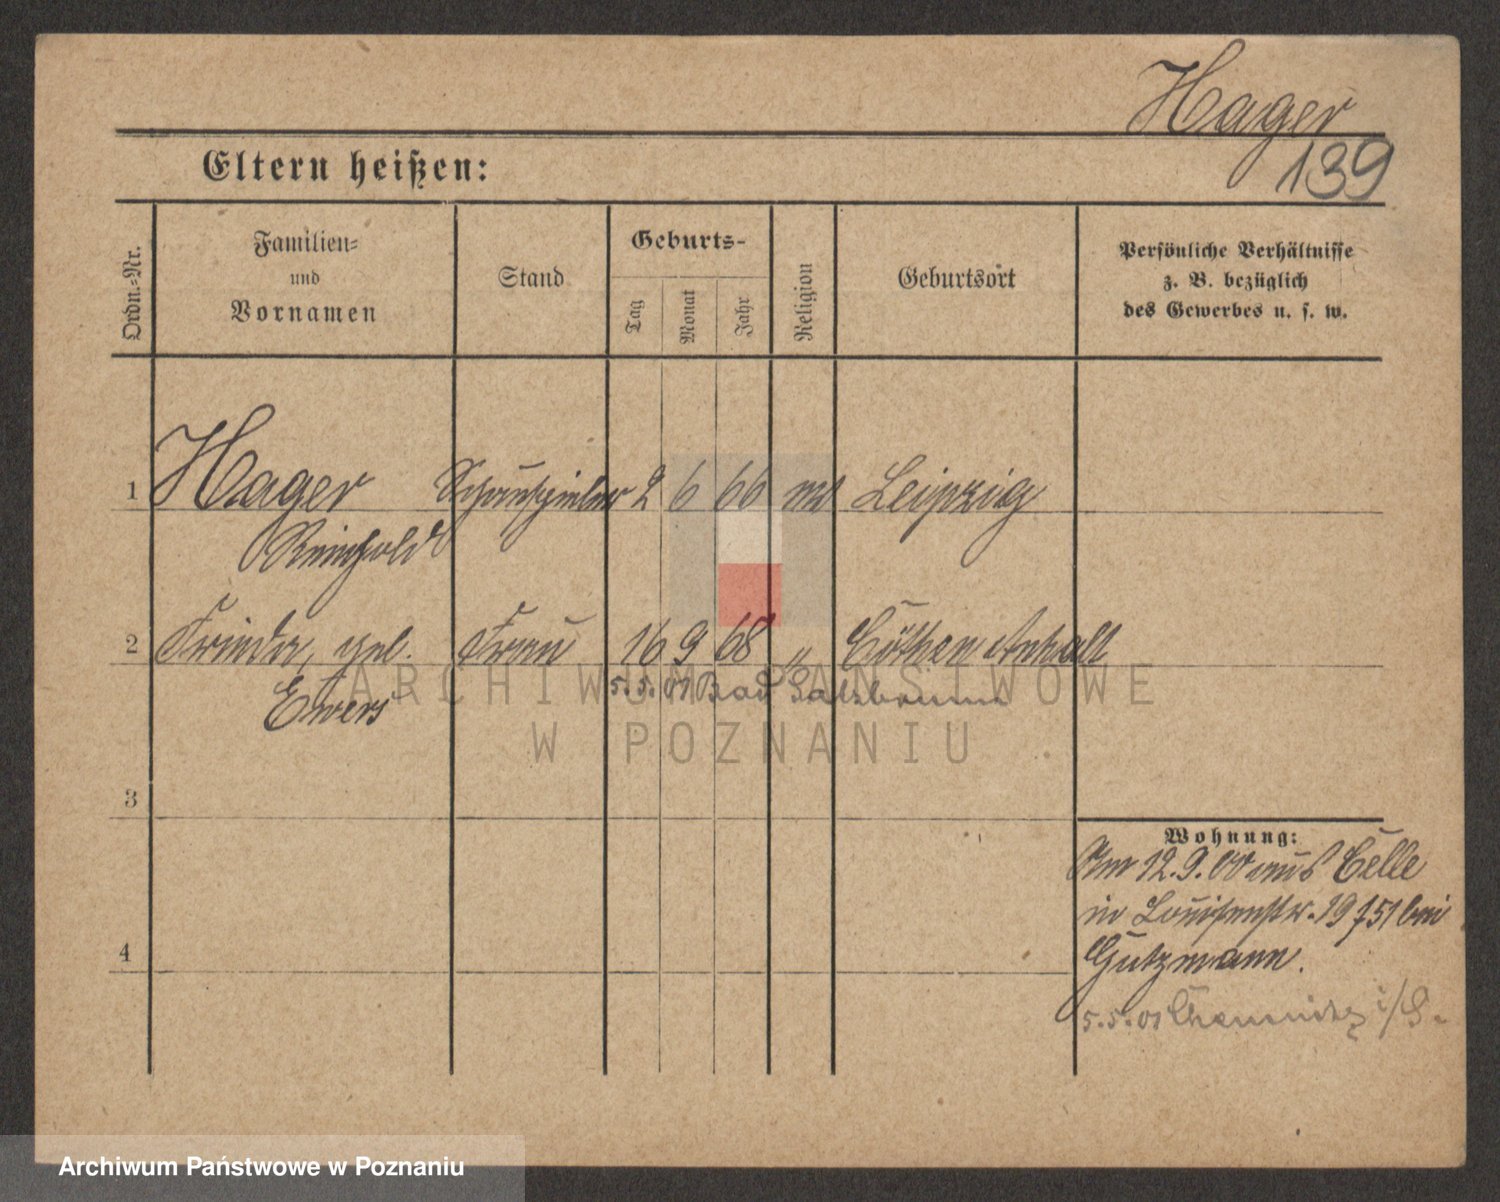 Hager
139
Eltern heißen:
Ordn.-Nr.
Familien-
und
Vornamen
Stand
Geburts-
Tag
Monat
Jahr
Religion
Geburtsort
Persönliche Verhältnisse
z. B. bezüglich
des Gewerbes u. s. w.
1 Hager Schauspieler 2 6 66 Leipzig
Reinhold
2 Frieda, geb. Frau 16 9 68 " Cöthen Anhalt
Ewers 5.5.01 Bad Salzbrunn
ARCHIWUM PAŃSTWOWE
W POZNANIU
3
4
Wohnung:
Am 12.9.00 aus Celle
in Louisenstr. 19 f51 bei
Gutzmann.
5.5.01 Chemnitz i/S.
Archiwum Państwowe w Poznaniu